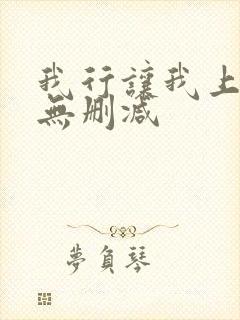 我行讓我上
無刪減
夢負琴